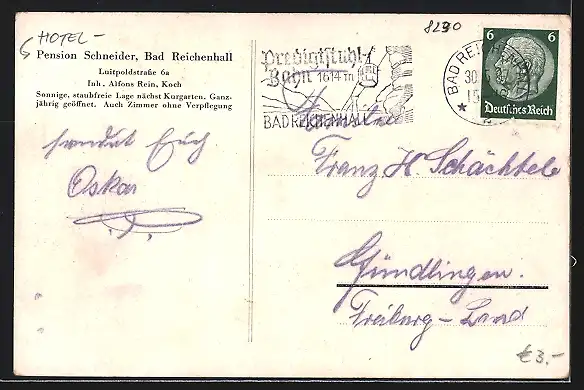 HOTEL-
Pension Schneider, Bad Reichenhall
Luitpoldstraße 6a
Inh. Alfons Rein, Koch
Sonnige, staubfreie Lage nächst Kurgarten. Ganz-
jährig geöffnet. Auch Zimmer ohne Verpflegung
sendet Euch
Oskar
8290
Predigtstuhl-
Bahn 1614 m
BAD REICHENHALL
BAD REICHENHALL
30.
6 6
Deutsches Reich
Franz H. Schächtele
Gündlingen.
Freiburg-Land
€3.-